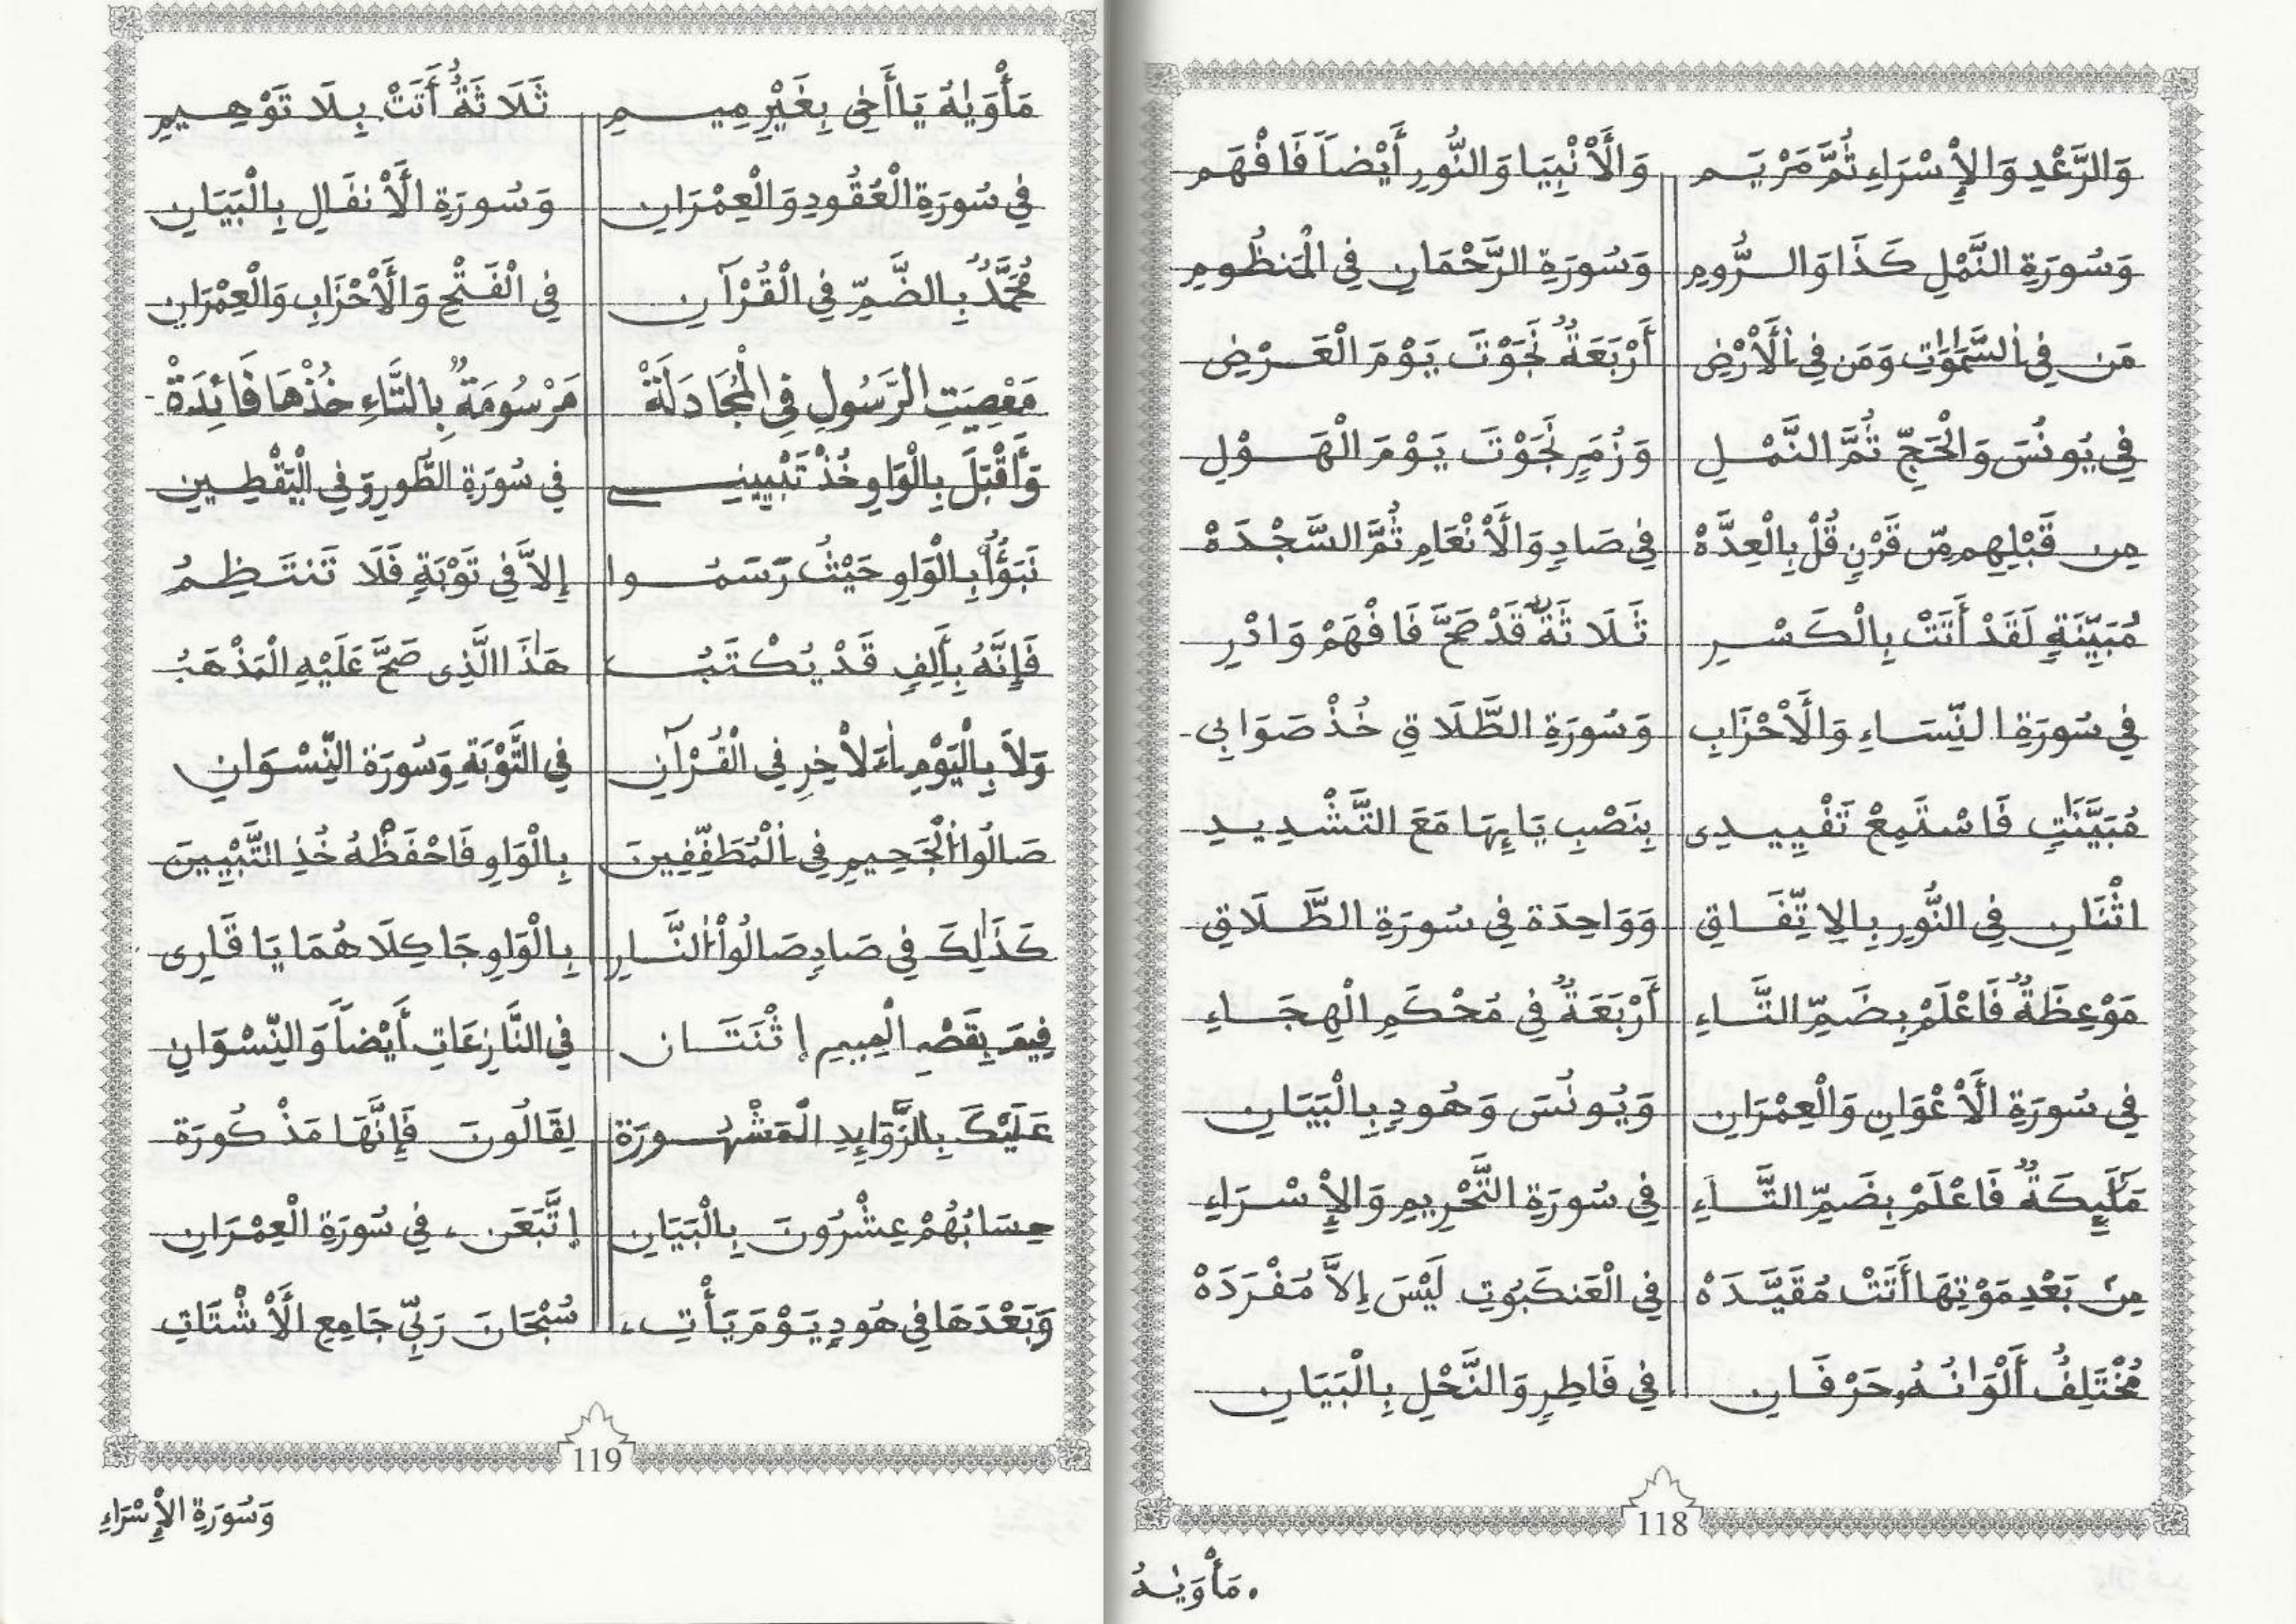 وَالرَّعْدِ وَالْإِسْرَاءِ ثُمَّ مَرْيَمِ وَالْأَنْبِيَا وَالنُّورِ أَيْضاً فَافْهَمِ
وَسُورَةِ النَّمْلِ كَذَا وَالرُّومِ وَسُورَةِ الرَّحْمَانِ فِي الْمَنظُومِ
مَن فِي السَّمَٰوَٰتِ وَمَن فِي الْأَرْضِ أَرْبَعَةٌ نَجَوْتَ يَوْمَ الْعَرْضِ
فِي يُونُسَ وَالْحَجِّ ثُمَّ النَّمْلِ وَزُمَرِ نَجَوْتَ يَوْمَ الْهَوْلِ
مِن قَبْلِهِم مِّن قَرْنٍ قُلْ بِالْعِدَّهْ فِي صَادِ وَالْأَنْعَامِ ثُمَّ السَّجْدَهْ
مُبَيِّنَةٍ لَقَدْ أَتَتْ بِالْكَسْرِ ثَلَاثَةٌ قَدْ صَحَّ فَافْهَمْ وَادْرِ
فِي سُورَةِ النِّسَاءِ وَالْأَحْزَابِ وَسُورَةِ الطَّلَاقِ خُذْ صَوَابِي
مُبَيَّنَٰتٍ فَاسْتَمِعْ تَفْيِيدِى بِنَصْبِ يَايِهَا مَعَ التَّشْدِيدِ
اثْنَانِ فِي النُّورِ بِالِاتِّفَاقِ وَوَاحِدَة فِي سُورَةِ الطَّلَاقِ
مَوْعِظَةٌ فَاعْلَمْ بِضَمِّ التَّاءِ أَرْبَعَةٌ فِي مُحْكَمِ الْهِجَاءِ
فِي سُورَةِ الْأَعْوَانِ وَالْعِمْرَانِ وَيُونُسَ وَهُودٍ بِالْبَيَانِ
مَلَٰٓئِكَةٌ فَاعْلَمْ بِضَمِّ التَّاءِ فِي سُورَةِ التَّحْرِيمِ وَالْإِسْرَاءِ
مِنْ بَعْدِ مَوْتِهَا أَتَتْ مُقَيَّدَهْ فِي الْعَنكَبُوتِ لَيْسَ إِلَّا مُفْرَدَهْ
مُخْتَلِفٌ أَلْوَٰنُهُ حَرْفَانِ فِي فَاطِرٍ وَالنَّحْلِ بِالْبَيَانِ
118
مَأْوَىٰهُ
مَأْوَىٰهُ يَا أَخِى بِغَيْرِ مِيمِ ثَلَاثَةٌ أَتَتْ بِلَا تَوْهِيمِ
فِي سُورَةِ الْعُقُودِ وَالْعِمْرَانِ وَسُورَةِ الْأَنفَالِ بِالْبَيَانِ
مُحَمَّدٌ بِالضَّمِّ فِي الْقُرْآنِ فِي الْفَتْحِ وَالْأَحْزَابِ وَالْعِمْرَانِ
مَعْصِيَتِ الرَّسُولِ فِي الْمُجَادَلَةْ مَرْسُومَةٌ بِالتَّاءِ خُذْهَا فَائِدَةْ
وَأَقْبَلَ بِالْوَاوِ خُذْ تَبْيِينِي فِي سُورَةِ الطُّورِ وَفِي الْيَقْطِينِ
نَبَؤُا بِالْوَاوِ حَيْثُ رَسَمُوا إِلَّا فِي تَوْبَةٍ فَلَا تَنتَظِمُ
فَإِنَّهُ بِأَلِفٍ قَدْ يُكْتَبُ هَٰذَا الَّذِى صَحَّ عَلَيْهِ الْمَذْهَبُ
وَلَا بِالْيَوْمِ اءَلَاخِرِ فِي الْقُرْآنِ فِي التَّوْبَةِ وَسُورَة النِّسْوَانِ
صَالُوا الْجَحِيمِ فِي الْمُطَفِّفِينَ بِالْوَاوِ فَاحْفَظْهُ خُذِ التَّبْيِينَ
كَذَٰلِكَ فِي صَادِ صَالُوا النَّارِ بِالْوَاوِ جَا كِلَاهُمَا يَا قَارِى
فِيمَ بِقَصْرِ الْمِيمِ إثْنَتَان فِي النَّازِعَاتِ أَيْضاً وَالنِّسْوَانِ
عَلَيْكَ بِالزَّوَايِدِ الْمَشْهُورَة لِقَالُونَ فَإِنَّهَا مَذْكُورَة
حِسَابُهُمْ عِشْرُونَ بِالْبَيَانِ إتَّبَعَنِ فِي سُورَةِ الْعِمْرَانِ
وَبَعْدَهَا فِي هُودٍ يَوْمَ يَأْتِ سُبْحَانَ رَبِّي جَامِعِ الْأَشْتَاتِ
119
وَسُورَةِ الْإِسْرَاءِ